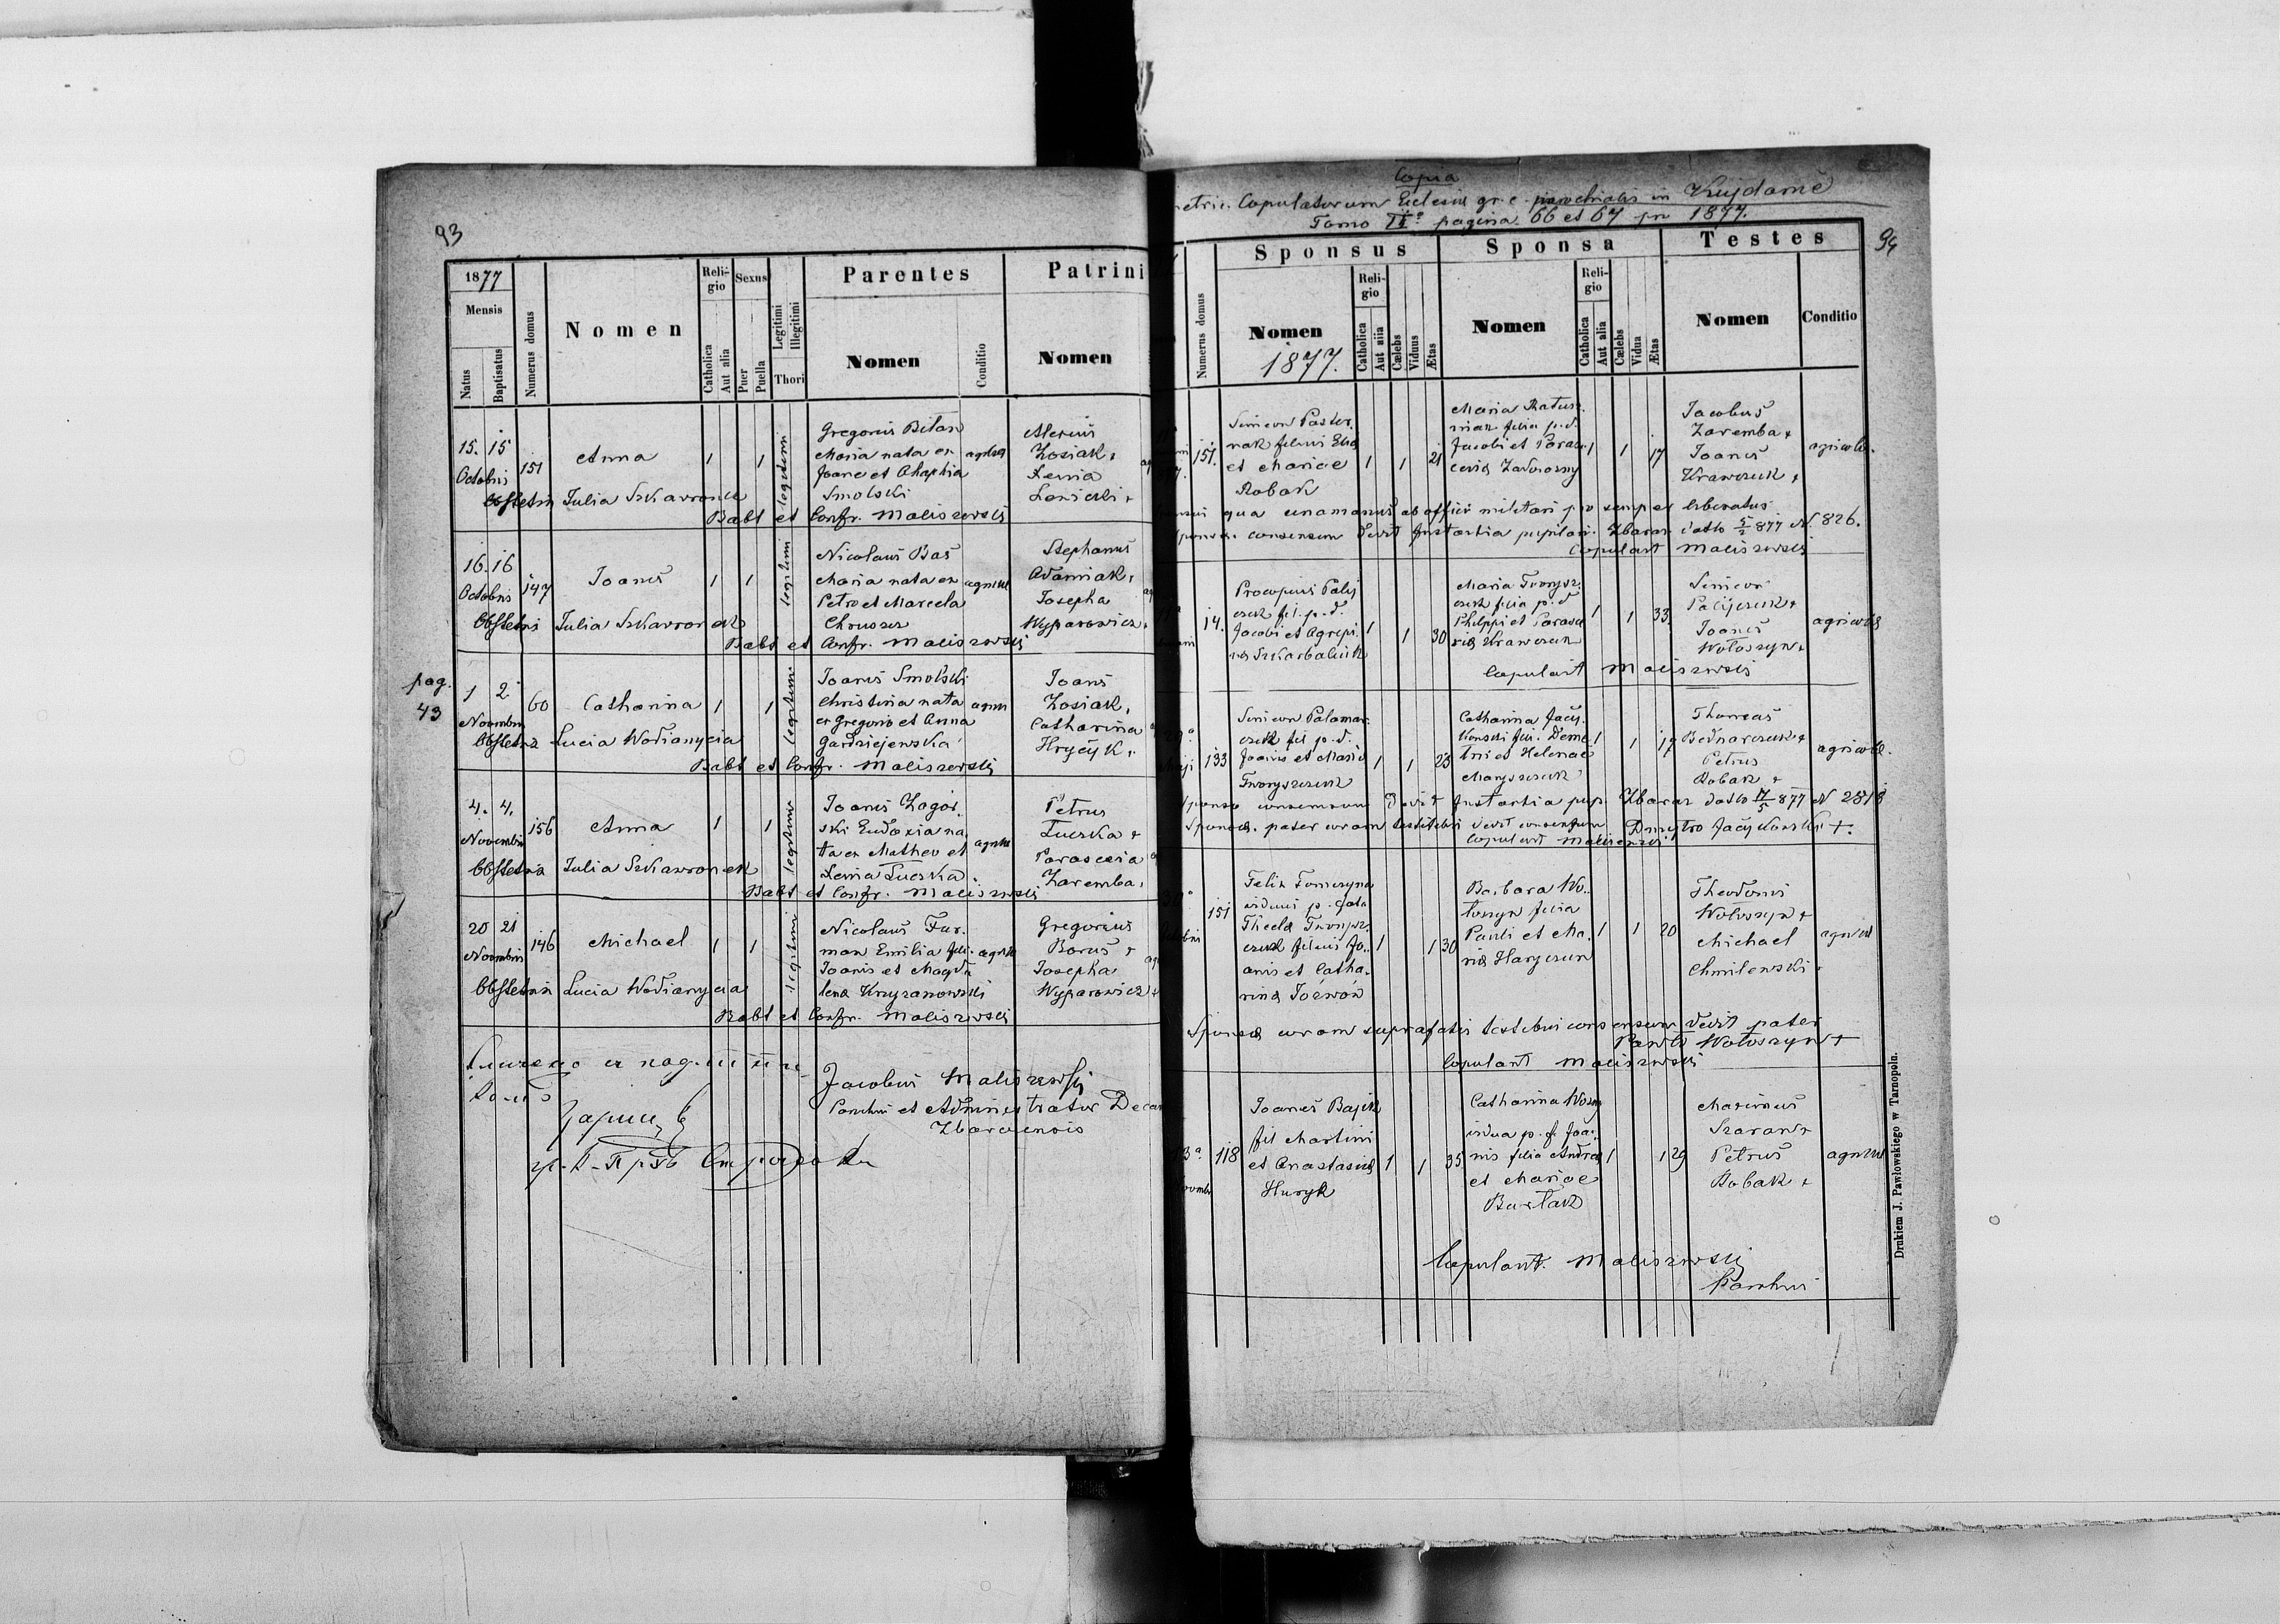 93
1877
Mensis
Natus
Baptisatus
Numerus domus
Nomen
Religio
Catholica
Aut alia
Sexus
Puer
Puella
Legitimi
Illegitimi
Thori
Parentes
Nomen
Conditio
Patrini
Nomen
15. 15
Octobris
151
Anna
1
1
legitimi
Gregorius Bilan
Maria nata ex
Joane et Ahaphia
Smolski
agricolae
Alexius
Zosiak,
Xenia
Obstetrix Julia Szkawronek
Babt et Confr. Maliszewski
16. 16
Octobris
147
Joanes
1
1
legitimi
Nicolaus Bas
Maria nata ex
Petro et Marcela
Chruszcz
Stephanus
Adamiak,
Josepha
Wyparowicz
Obstetrix Julia Szkawronek
Babt et Confr. Maliszewski
pag.
43
1 2
Novembris
60
Catharina
1
1
legitimi
Joanes Smolski
Christina nata
ex Gregorio et Anna
Gardziejewska
Joanes
Zosiak,
Catharina
Hrycyk
Obstetrix Lucia Wodianycia
Babt et Confr. Maliszewski
4. 4.
Novembris
156
Anna
1
1
legitimi
Joanes Zagór
ski Eudoxia na
ta ex Matheo et
Xenia Luczka
Petrus
Luczka +
Parascevia
Zaremba
Obstetrix Julia Szkawronek
Babt et Confr. Maliszewski
20 21
Novembris
146
Michael
1
1
legitimi
Nicolaus Fur
man Emilia fili.
Joanis et Magda
lena Krzyzanowski
Gregorius
Borus +
Josepha
Wyparowicz +
Obstetrix Lucia Wodianycia
Babt et Confr. Maliszewski
Jacobus Maliszewski
Parochus et Administrator
Zbaraensis
Copia
Copulatorum Eclesiae gr. c. parochialis in Kujdańce
Tomo II° pagina 66 et 67 pr 1877.
94
Numerus domus
Sponsus
Nomen
1877.
Religio
Catholica
Aut alia
Cælebs
Viduus
Ætas
Sponsa
Nomen
Religio
Catholica
Aut alia
Cælebs
Vidua
Ætas
Testes
Nomen
Conditio
151.
Simeon Paster
nak filius Elia
et Mariae
Robak
1
1
21
Maria Ratusz
niak filia p.d.
Jacobi et Paras
cevia
1
1
17
Jacobus
Zaremba +
Joanes
Krawczuk +
agricolae.
qua unamanus ab officii militari pro semper liberatus
consensum dedit Instantia pupilari Zbaraz datto 5/2 877 N. 826.
Copulavit Maliszewski
14.
Procopius Palij
czuk fil. p.d.
Jacobi et Agripi
na Szkarbaluk
1
1
30
Maria Tworysz
czuk filia p.d
Philippi et Parasce
via Krawczuk
1
1
33
Simeon
Palijczuk +
Joanes
Wołoszyn +
agricolae
Copulavit Maliszewski
133
Simeon Palamar
czuk fil p.d.
Joanis et Maria
Tworyszczuk
1
1
23
Catharina Jacy
kowski fili. Deme
trii et Helenae
Maryszczuk
1
1
17
Thomas
Bednarczuk +
Petrus
Robak +
agricolae.
Sponso consensum Dedit Instantia pup. Zbaraz datto 17/5 877 N 2513
Sponsae pater coram testibus dedit consensum Dmytro Jacykowski +.
Copulavit Maliszewski
151
Felix Tomczyna
viduus p.
Thecla Tworysz
czuk filius Jo
anis et Catha
rina
1
1
30
Barbara Wo
łoszyn filia
Pauli et Ma
ria Harczun
1
1
20
Theodorus
Wołoszyn +
Michael
Chmilewski +
Sponsae coram suprafatis testibus consensum dedit pater
Pawło Wołoszyn +
Copulavit Maliszewski
118
Joanes Bajük
fil Martini
et Anastasia
Huryk
1
1
35
Catharina
vidua p. f. Joa
nis filia Andrea
et Mariae
Burłak
1
1
29
Maximus
Szaran +
Petrus
Robak +
Copulavit. Maliszewski
Parochus
Drukiem J. Pawłowskiego w Tarnopolu.